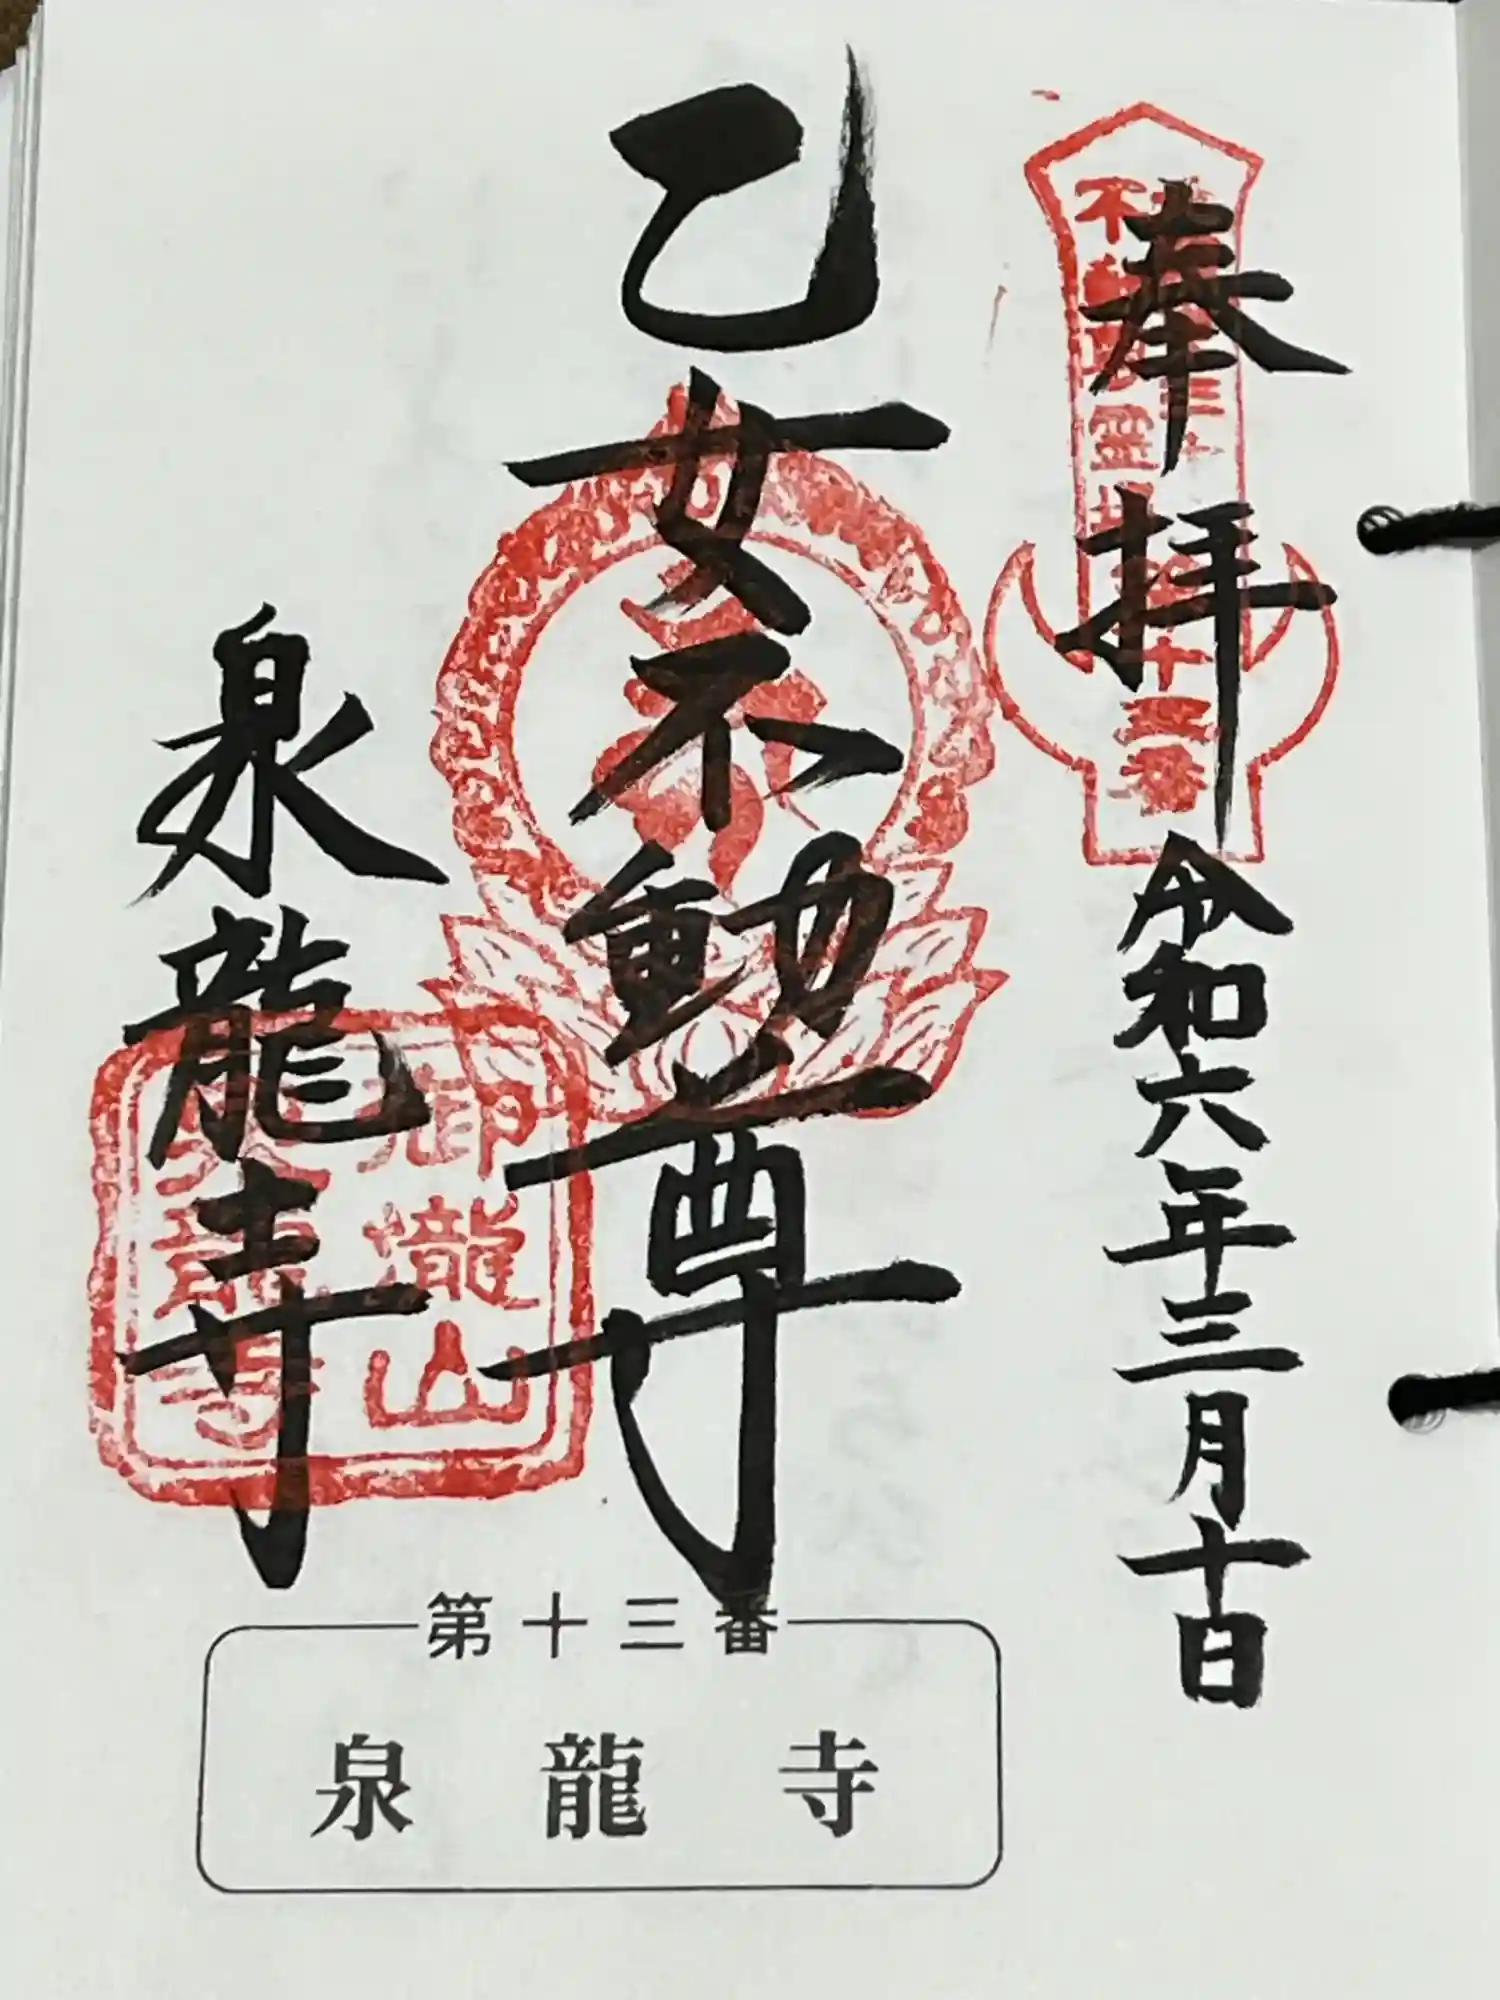 奉拝
令和六年三月十日
乙女不動尊
泉龍寺
御瀧山
泉龍寺
第十三番
泉龍寺